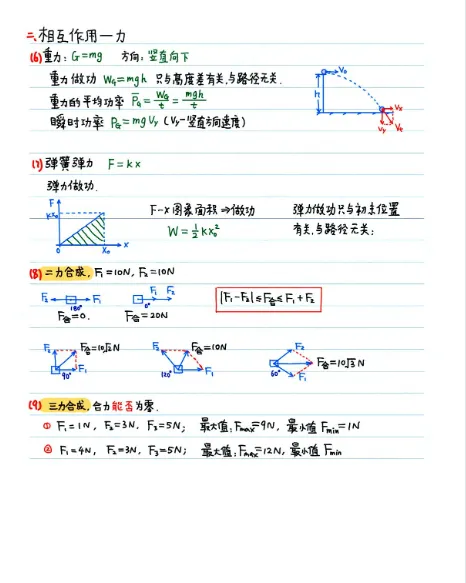 二、相互作用—力
(6)重力：G=mg 方向：竖直向下
重力做功 W_G=mgh 只与高度差有关，与路径无关．
重力的平均功率 P̄_G = W_G/t = mgh/t
瞬时功率 P_G=mgV_y (V_y-竖直方向速度)
h V₀ Vₓ V_y V_t
(7)弹簧弹力 F=kx
弹力做功．
F kx₀ 0 x₀ x
F-x图象面积⇒做功
W=½kx₀²
弹力做功只与初末位置
有关，与路径无关；
(8)二力合成，F₁=10N，F₂=10N
F₂ 180° F₁
F合=0．
0° F₁ F₂
F合=20N
|F₁-F₂|≤F合≤F₁+F₂
F₂ F合=10√2N F₁ 90°
F₂ F合=10N F₁ 120°
F₂ F合=10√3N F₁ 60°
(9)三力合成，合力能否为零．
① F₁=1N，F₂=3N，F₃=5N； 最大值：Fmax=9N，最小值Fmin=1N
② F₁=4N，F₂=3N，F₃=5N； 最大值：Fmax=12N，最小值Fmin